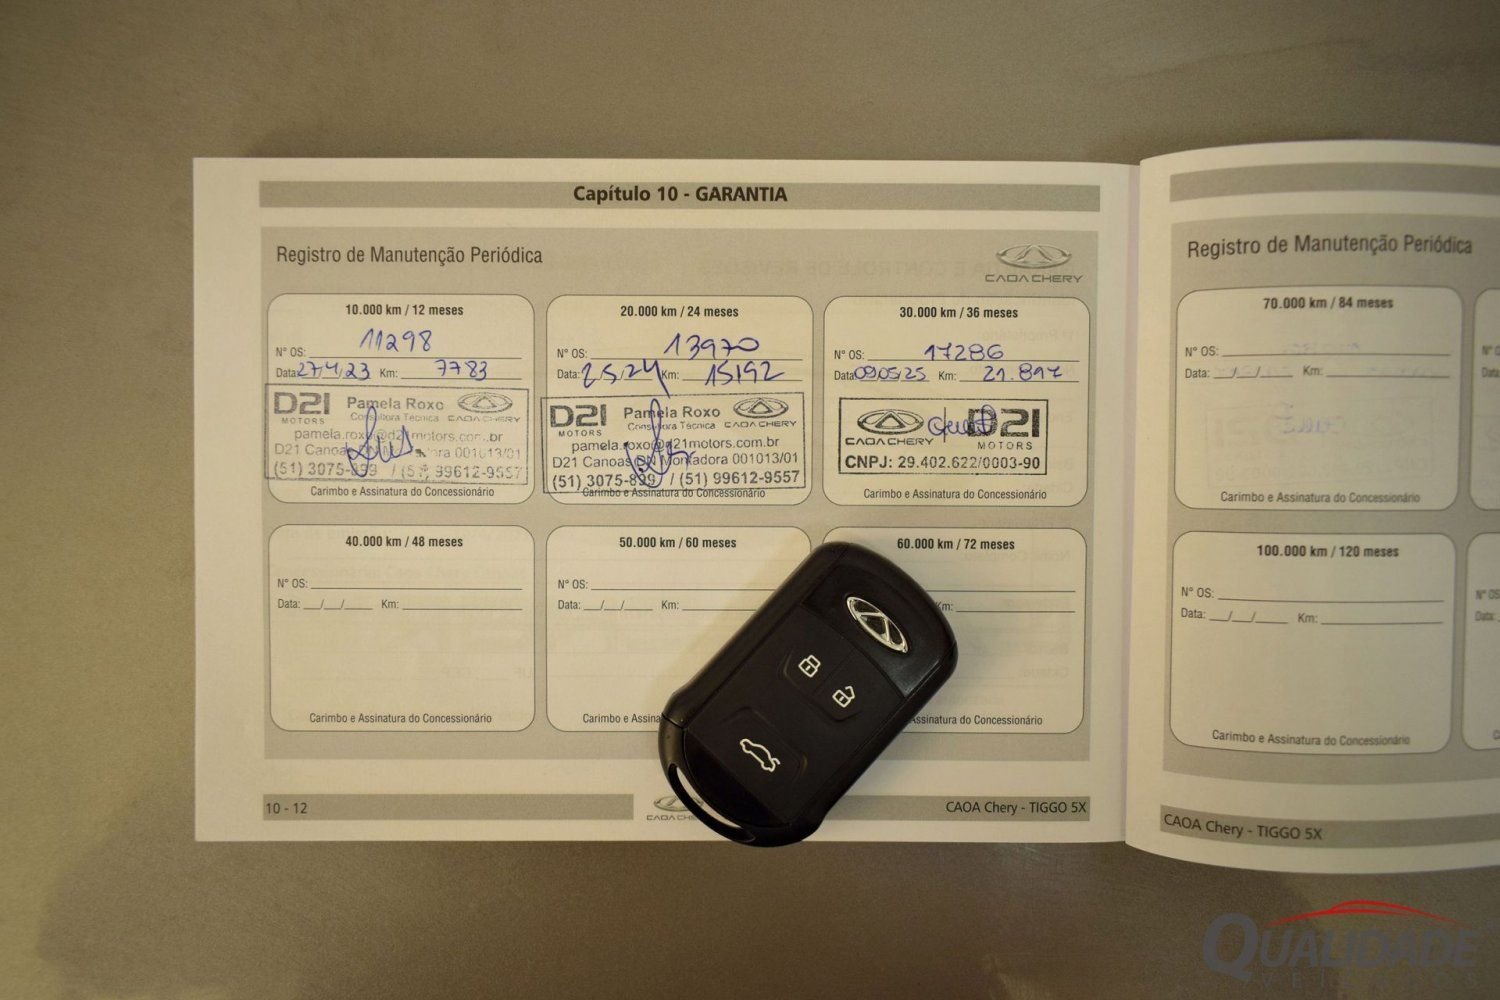 Capítulo 10 - GARANTIA
Registro de Manutenção Periódica
CAOA CHERY
10.000 km / 12 meses
N° OS: 11298
Data: 27/4/23 Km: 7783
D21 MOTORS
Pamela Roxo
Consultora Técnica
CAOA CHERY
pamela.roxo@d21motors.com.br
D21 Canoas
001013/01
(51) 3075-899 / (51) 99612-9557
Carimbo e Assinatura do Concessionário
20.000 km / 24 meses
N° OS: 13970
Data: Km: 15192
D21 MOTORS
Pamela Roxo
Consultora Técnica
CAOA CHERY
pamela.roxo@d21motors.com.br
D21 Canoas DN Montadora 001013/01
(51) 3075-899 / (51) 99612-9557
Carimbo e Assinatura do Concessionário
30.000 km / 36 meses
N° OS: 17286
Data: 09/05/25 Km: 21.897
CAOA CHERY
D21 MOTORS
CNPJ: 29.402.622/0003-90
Carimbo e Assinatura do Concessionário
40.000 km / 48 meses
N° OS:
Data: __/__/__ Km:
Carimbo e Assinatura do Concessionário
50.000 km / 60 meses
N° OS:
Data: __/__/__ Km:
Carimbo e Assina
60.000 km / 72 meses
Km:
Assinatura do Concessionário
10 - 12
CAOA CHE
CAOA Chery - TIGGO 5X
Registro de Manutenção Periódica
70.000 km / 84 meses
N° OS:
Data: __/__/__ Km:
Carimbo e Assinatura do Concessionário
100.000 km / 120 meses
N° OS:
Data: __/__/__ Km:
Carimbo e Assinatura do Concessionário
N° OS:
Data:
CAOA Chery - TIGGO 5X
QUALIDADE
VEÍCULOS